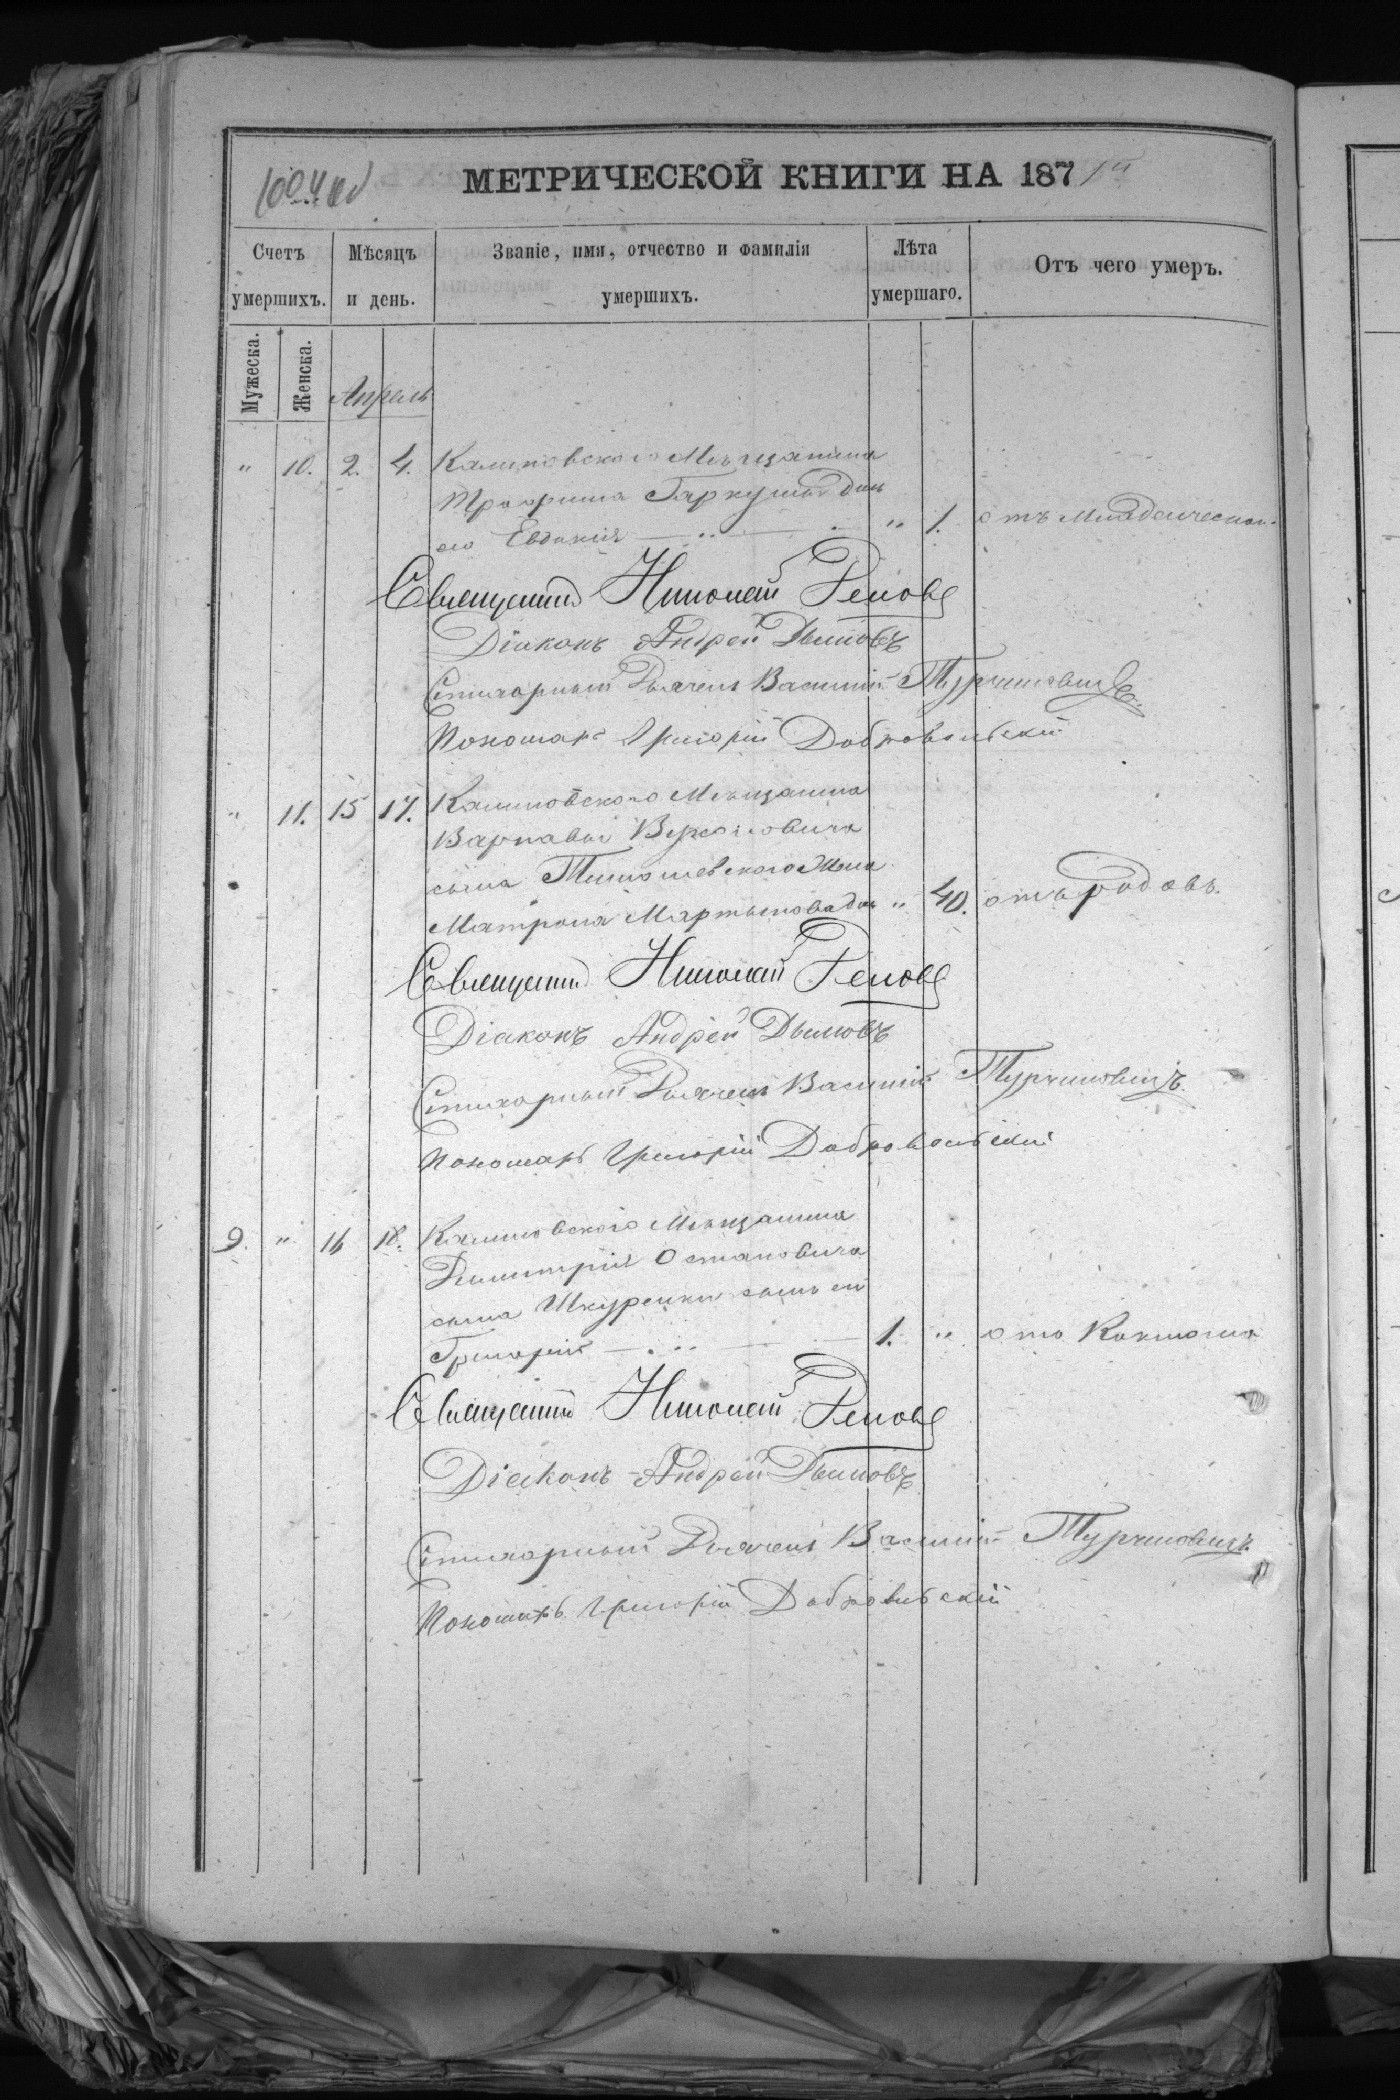 МЕТРИЧЕСКОЙ КНИГИ НА 1871
Счетъ умершихъ.
Мѣсяцъ и день.
Званіе, имя, отчество и фамилія умершихъ.
Лѣта умершаго.
Отъ чего умеръ.
Мужеска.
Женска.
Апрель
" 10. 2. 4. Калиновского Мѣщанина
Трофима Гаркуши дочь
его Евдокія " 1. отъ младенческой
Священникъ Николай
Діаконъ Андрей Дымовъ
Стихарный Дьячекъ Василий Турчиновичъ
Пономарь Григорій Добровольскій
" 11. 15 17. Калиновского Мѣщанина
Варнавы
сына жена
Матрона Мартынова дочь " 40. отъ родовъ.
Священникъ Николай
Діаконъ Андрей Дымовъ
Стихарный Дьячекъ Василий Турчиновичъ
Пономарь Григорій Добровольскій
9. " 16 18. Калиновского Мѣщанина
Димитрія Остаповича
сына Шкуренки сынъ его
Григорій 1. " отъ Коклюша
Священникъ Николай
Діаконъ Андрей Дымовъ
Стихарный Дьячекъ Василий Турчиновичъ
Пономарь Григорій Добровольскій